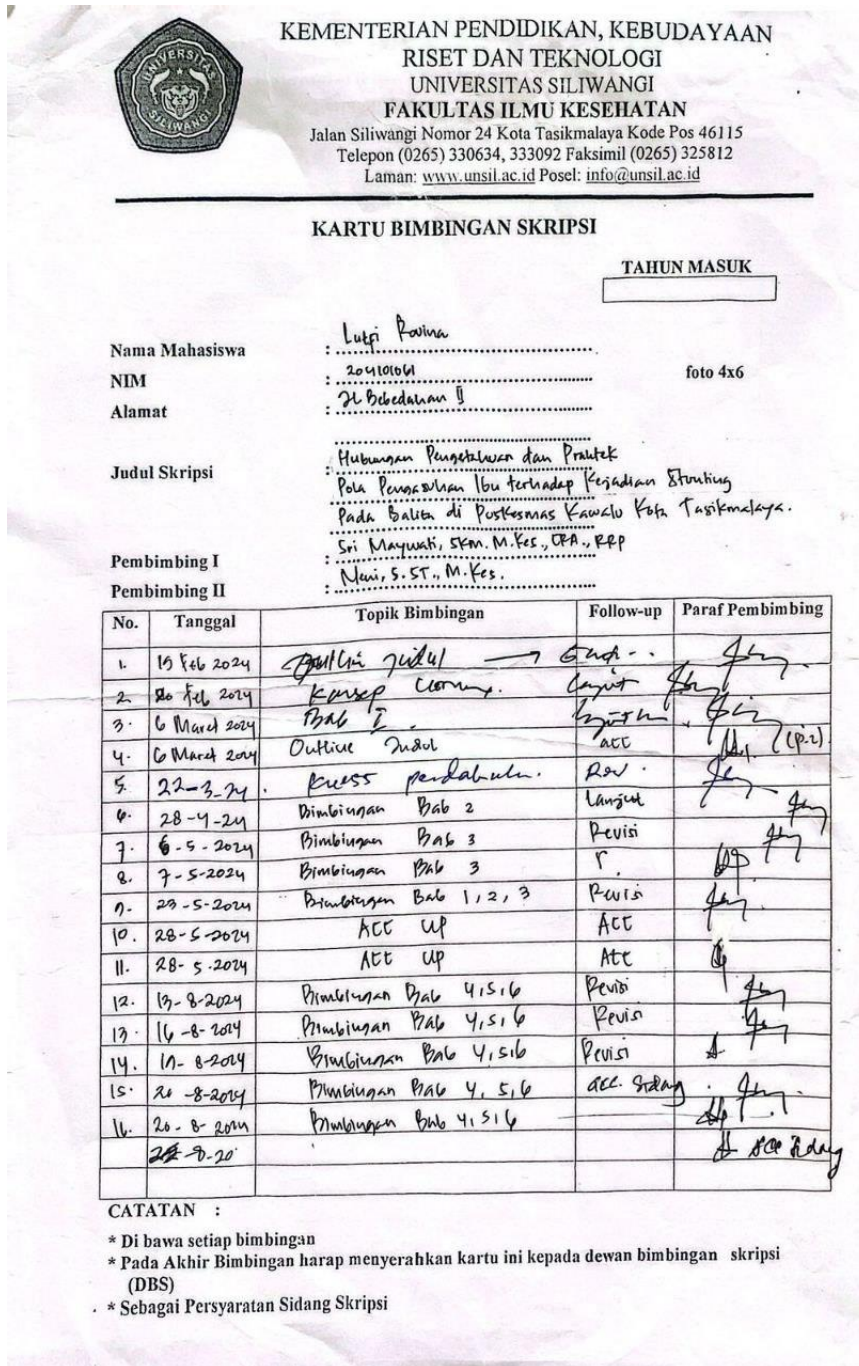 UNIVERSITAS
SILIWANGI
KEMENTERIAN PENDIDIKAN, KEBUDAYAAN
RISET DAN TEKNOLOGI
UNIVERSITAS SILIWANGI
FAKULTAS ILMU KESEHATAN
Jalan Siliwangi Nomor 24 Kota Tasikmalaya Kode Pos 46115
Telepon (0265) 330634, 333092 Faksimil (0265) 325812
Laman: www.unsil.ac.id Posel: info@unsil.ac.id
KARTU BIMBINGAN SKRIPSI
TAHUN MASUK
Nama Mahasiswa : Lutfi Rovina
NIM : 204101061
foto 4x6
Alamat : Jl Bebedahan II
Judul Skripsi : Hubungan Pengetahuan dan Praktek
Pola Pengasuhan Ibu terhadap Kejadian Stunting
Pada Balita di Puskesmas Kawalu Kota Tasikmalaya.
Pembimbing I : Sri Maywati, SKM. M.Kes., CRA., RRP
Pembimbing II : Neni, S.ST., M.Kes.
No. Tanggal Topik Bimbingan Follow-up Paraf Pembimbing
1. Feb 2024 judul →
2. 20 Feb 2024 Konsep
3. 6 Maret 2024 Bab I
4. 6 Maret 2024 Outline Judul acc (p.2)
5. 22-3-24 Rev.
6. 28-4-24 Bimbingan Bab 2 Lanjut
7. 6-5-2024 Bimbingan Bab 3 Revisi
8. 7-5-2024 Bimbingan Bab 3 r.
9. 23-5-2024 Bimbingan Bab 1,2,3 Revisi
10. 28-5-2024 ACC UP ACC
11. 28-5.2024 ACC UP Acc
12. 13-8-2024 Bimbingan Bab 4,5,6 Revisi
13. 16-8-2024 Bimbingan Bab 4,5,6 Revisi
14. 8-2024 Bimbingan Bab 4,5,6 Revisi
15. 20-8-2024 Bimbingan Bab 4, 5,6 acc. Sidang
16. 20-8-2024 Bimbingan Bab 4,5,6
Acc Sidang
CATATAN :
* Di bawa setiap bimbingan
* Pada Akhir Bimbingan harap menyerahkan kartu ini kepada dewan bimbingan skripsi
(DBS)
* Sebagai Persyaratan Sidang Skripsi